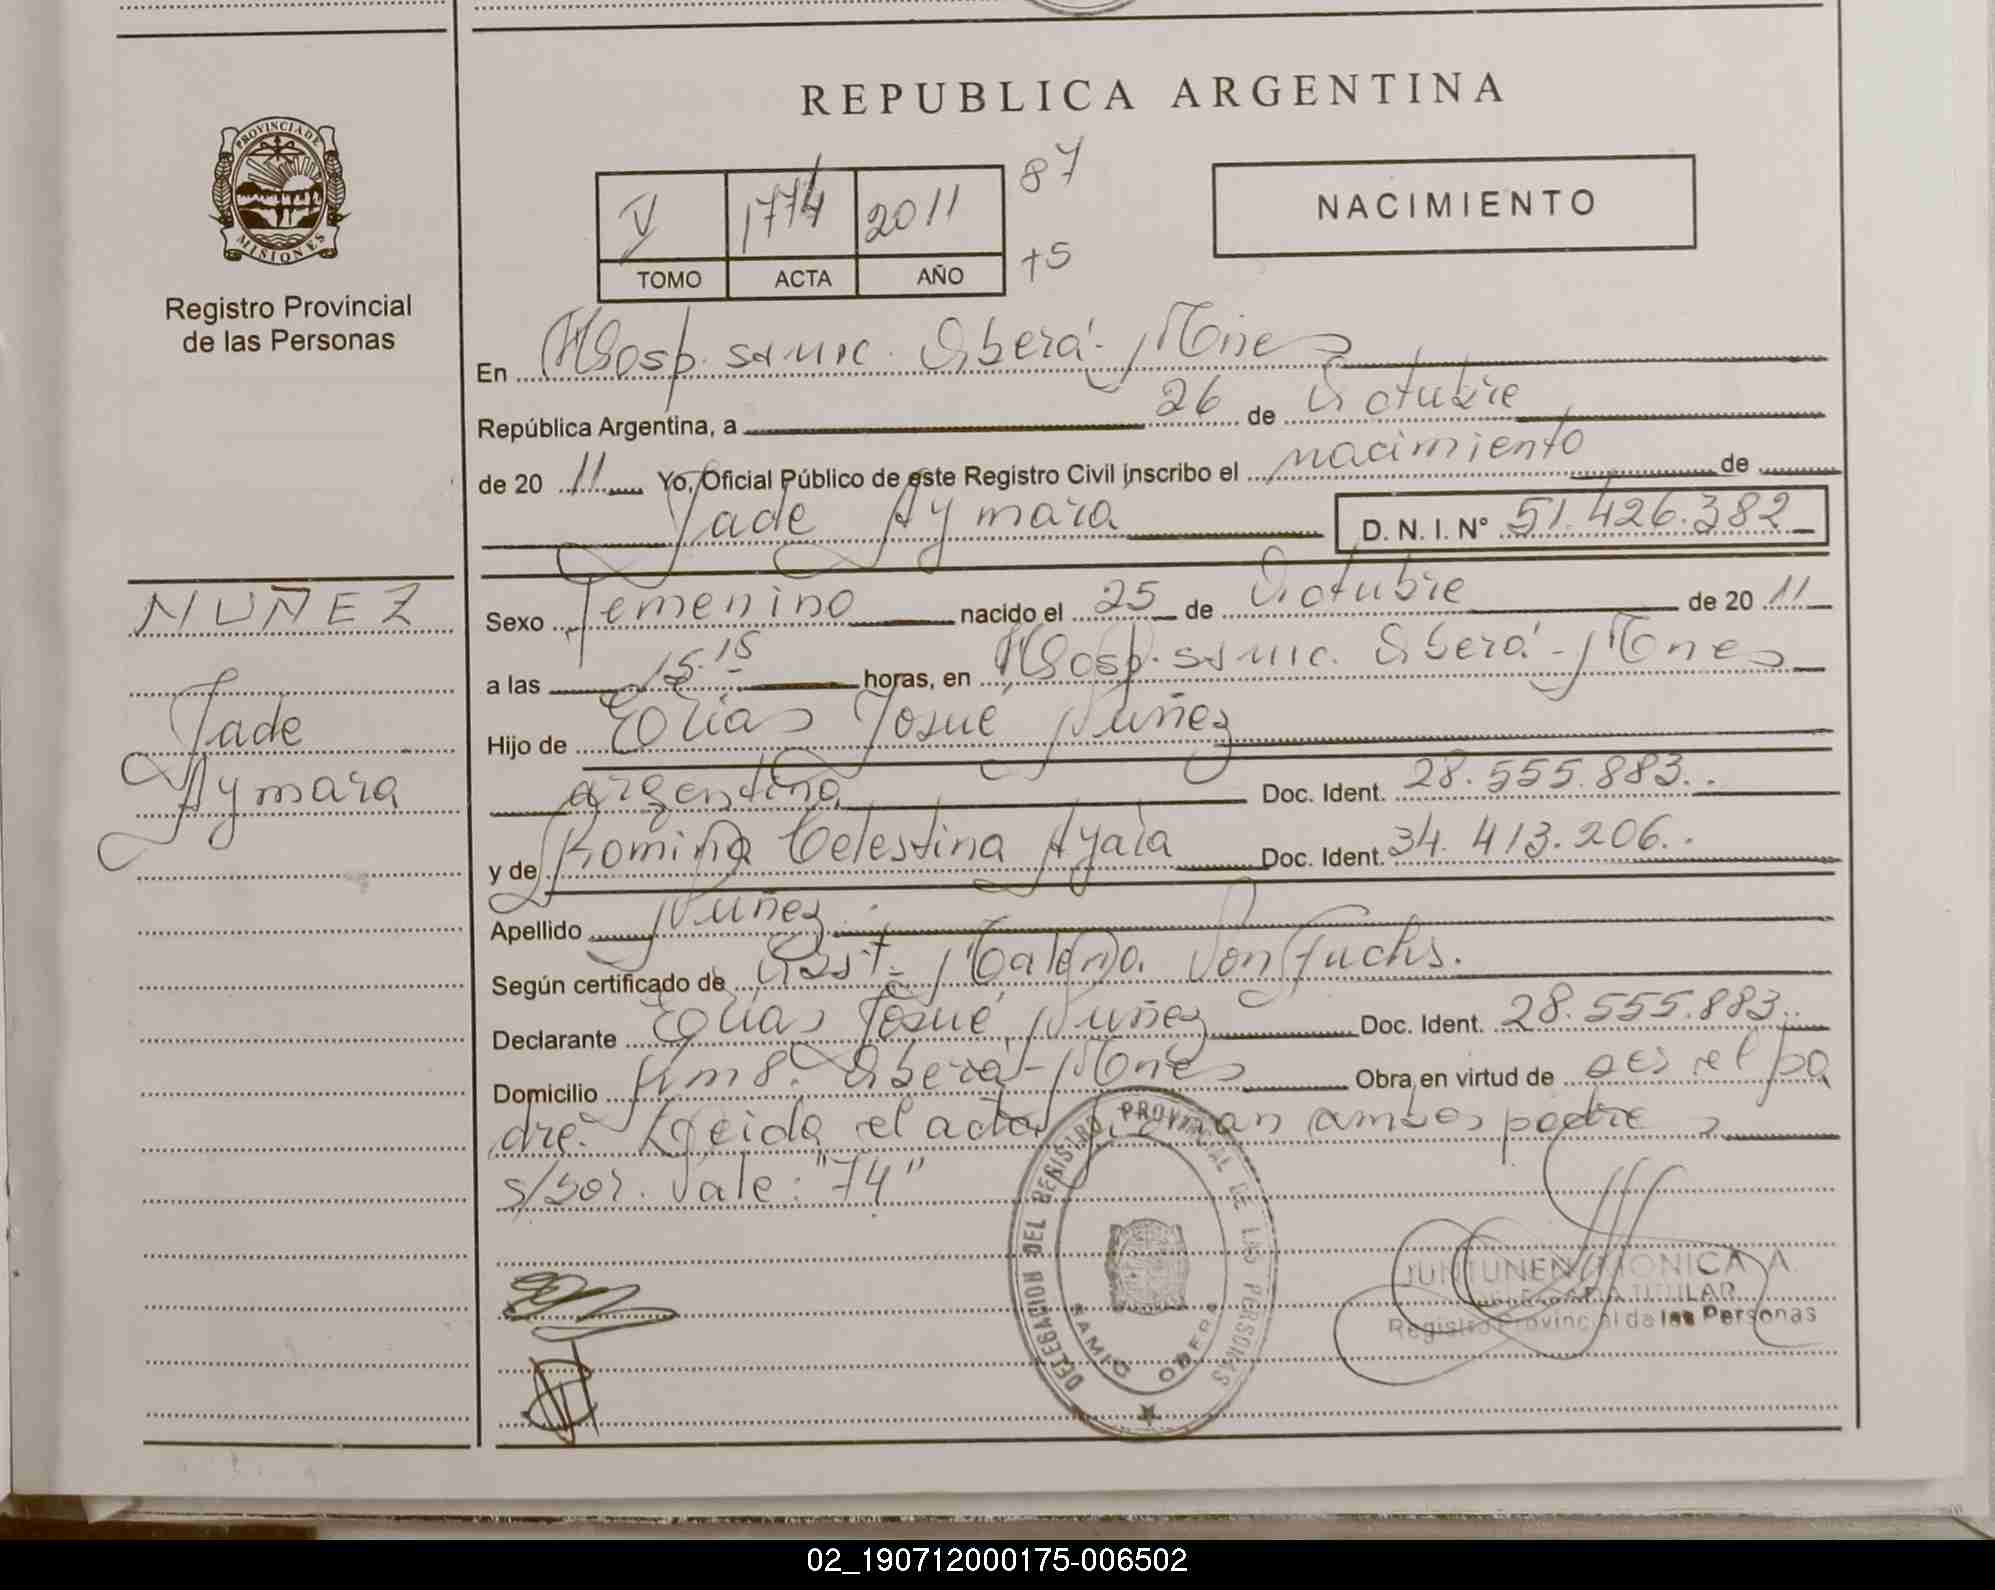 REPUBLICA ARGENTINA
PROVINCIA DE
MISIONES
Registro Provincial
de las Personas
V 1774 2011 87
TOMO ACTA AÑO +5
NACIMIENTO
En Hosp. samic. Oberá - Mnes
República Argentina, a 26 de Octubre
de 20 11 Yo, Oficial Público de este Registro Civil inscribo el nacimiento de
Jade Aymara D. N. I. N° 51.426.382
NUÑEZ
Jade
Aymara
Sexo Femenino nacido el 25 de Octubre de 20 11
a las 15.15 horas, en Hosp. samic. Oberá - Mnes
Hijo de Elias Josué Nuñez
argentina Doc. Ident. 28.555.883..
y de Romina Celestina Ayala Doc. Ident. 34.413.206..
Apellido Nuñez.
Según certificado de Obst. Malena Von Fuchs.
Declarante Elias Josué Nuñez Doc. Ident. 28.555.883..
Domicilio Km 8. Oberá - Mnes Obra en virtud de ser el pa
dre. Leida el acta firman ambos padres
s/bor. Vale: "74"
DELEGACION DEL REGISTRO PROVINCIAL DE LAS PERSONAS
SAMIC OBERA
JUNTUNEN MONICA A.
TITULAR
Registro Provincial de las Personas
02_190712000175-006502